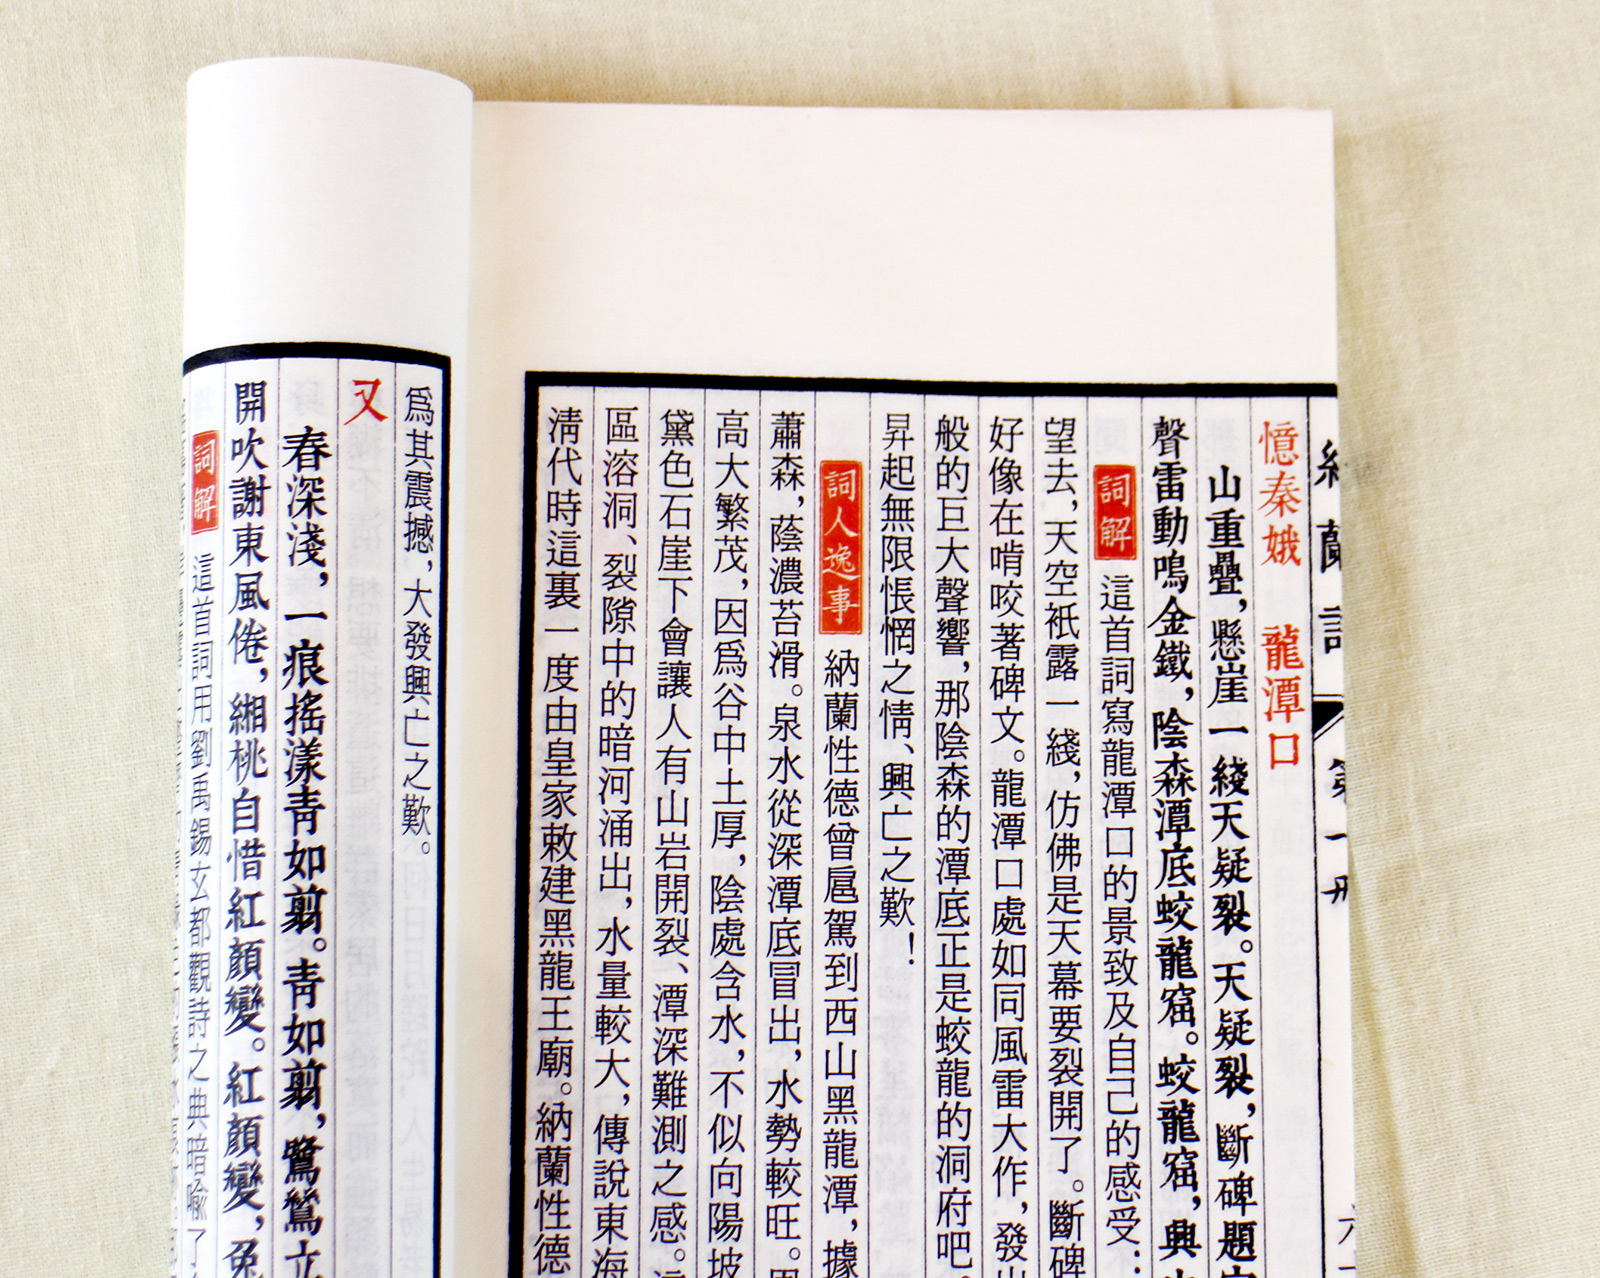 憶秦娥 龍潭口
山重疊，懸崖一綫天疑裂。天疑裂，斷碑題
聲雷動鳴金鐵，陰森潭底蛟龍窟。蛟龍窟，興
詞解 這首詞寫龍潭口的景致及自己的感受：
望去，天空衹露一綫，仿佛是天幕要裂開了。斷碑
好像在啃咬著碑文。龍潭口處如同風雷大作，發出
般的巨大聲響，那陰森的潭底正是蛟龍的洞府吧。
昇起無限悵惘之情、興亡之歎！
詞人逸事 納蘭性德曾扈駕到西山黑龍潭，據
蕭森，蔭濃苔滑。泉水從深潭底冒出，水勢較旺。
高大繁茂，因爲谷中土厚，陰處含水，不似向陽坡
黛色石崖下會讓人有山岩開裂、潭深難測之感。
區溶洞、裂隙中的暗河涌出，水量較大，傳說東海
清代時這裏一度由皇家敕建黑龍王廟。納蘭性德
爲其震撼，大發興亡之歎。
又
春深淺，一痕搖漾青如剪。青如剪，鷺鷥立
開吹謝東風倦，緗桃自惜紅顏變。紅顏變，兔
詞解 這首詞用劉禹錫玄都觀詩之典暗喻了